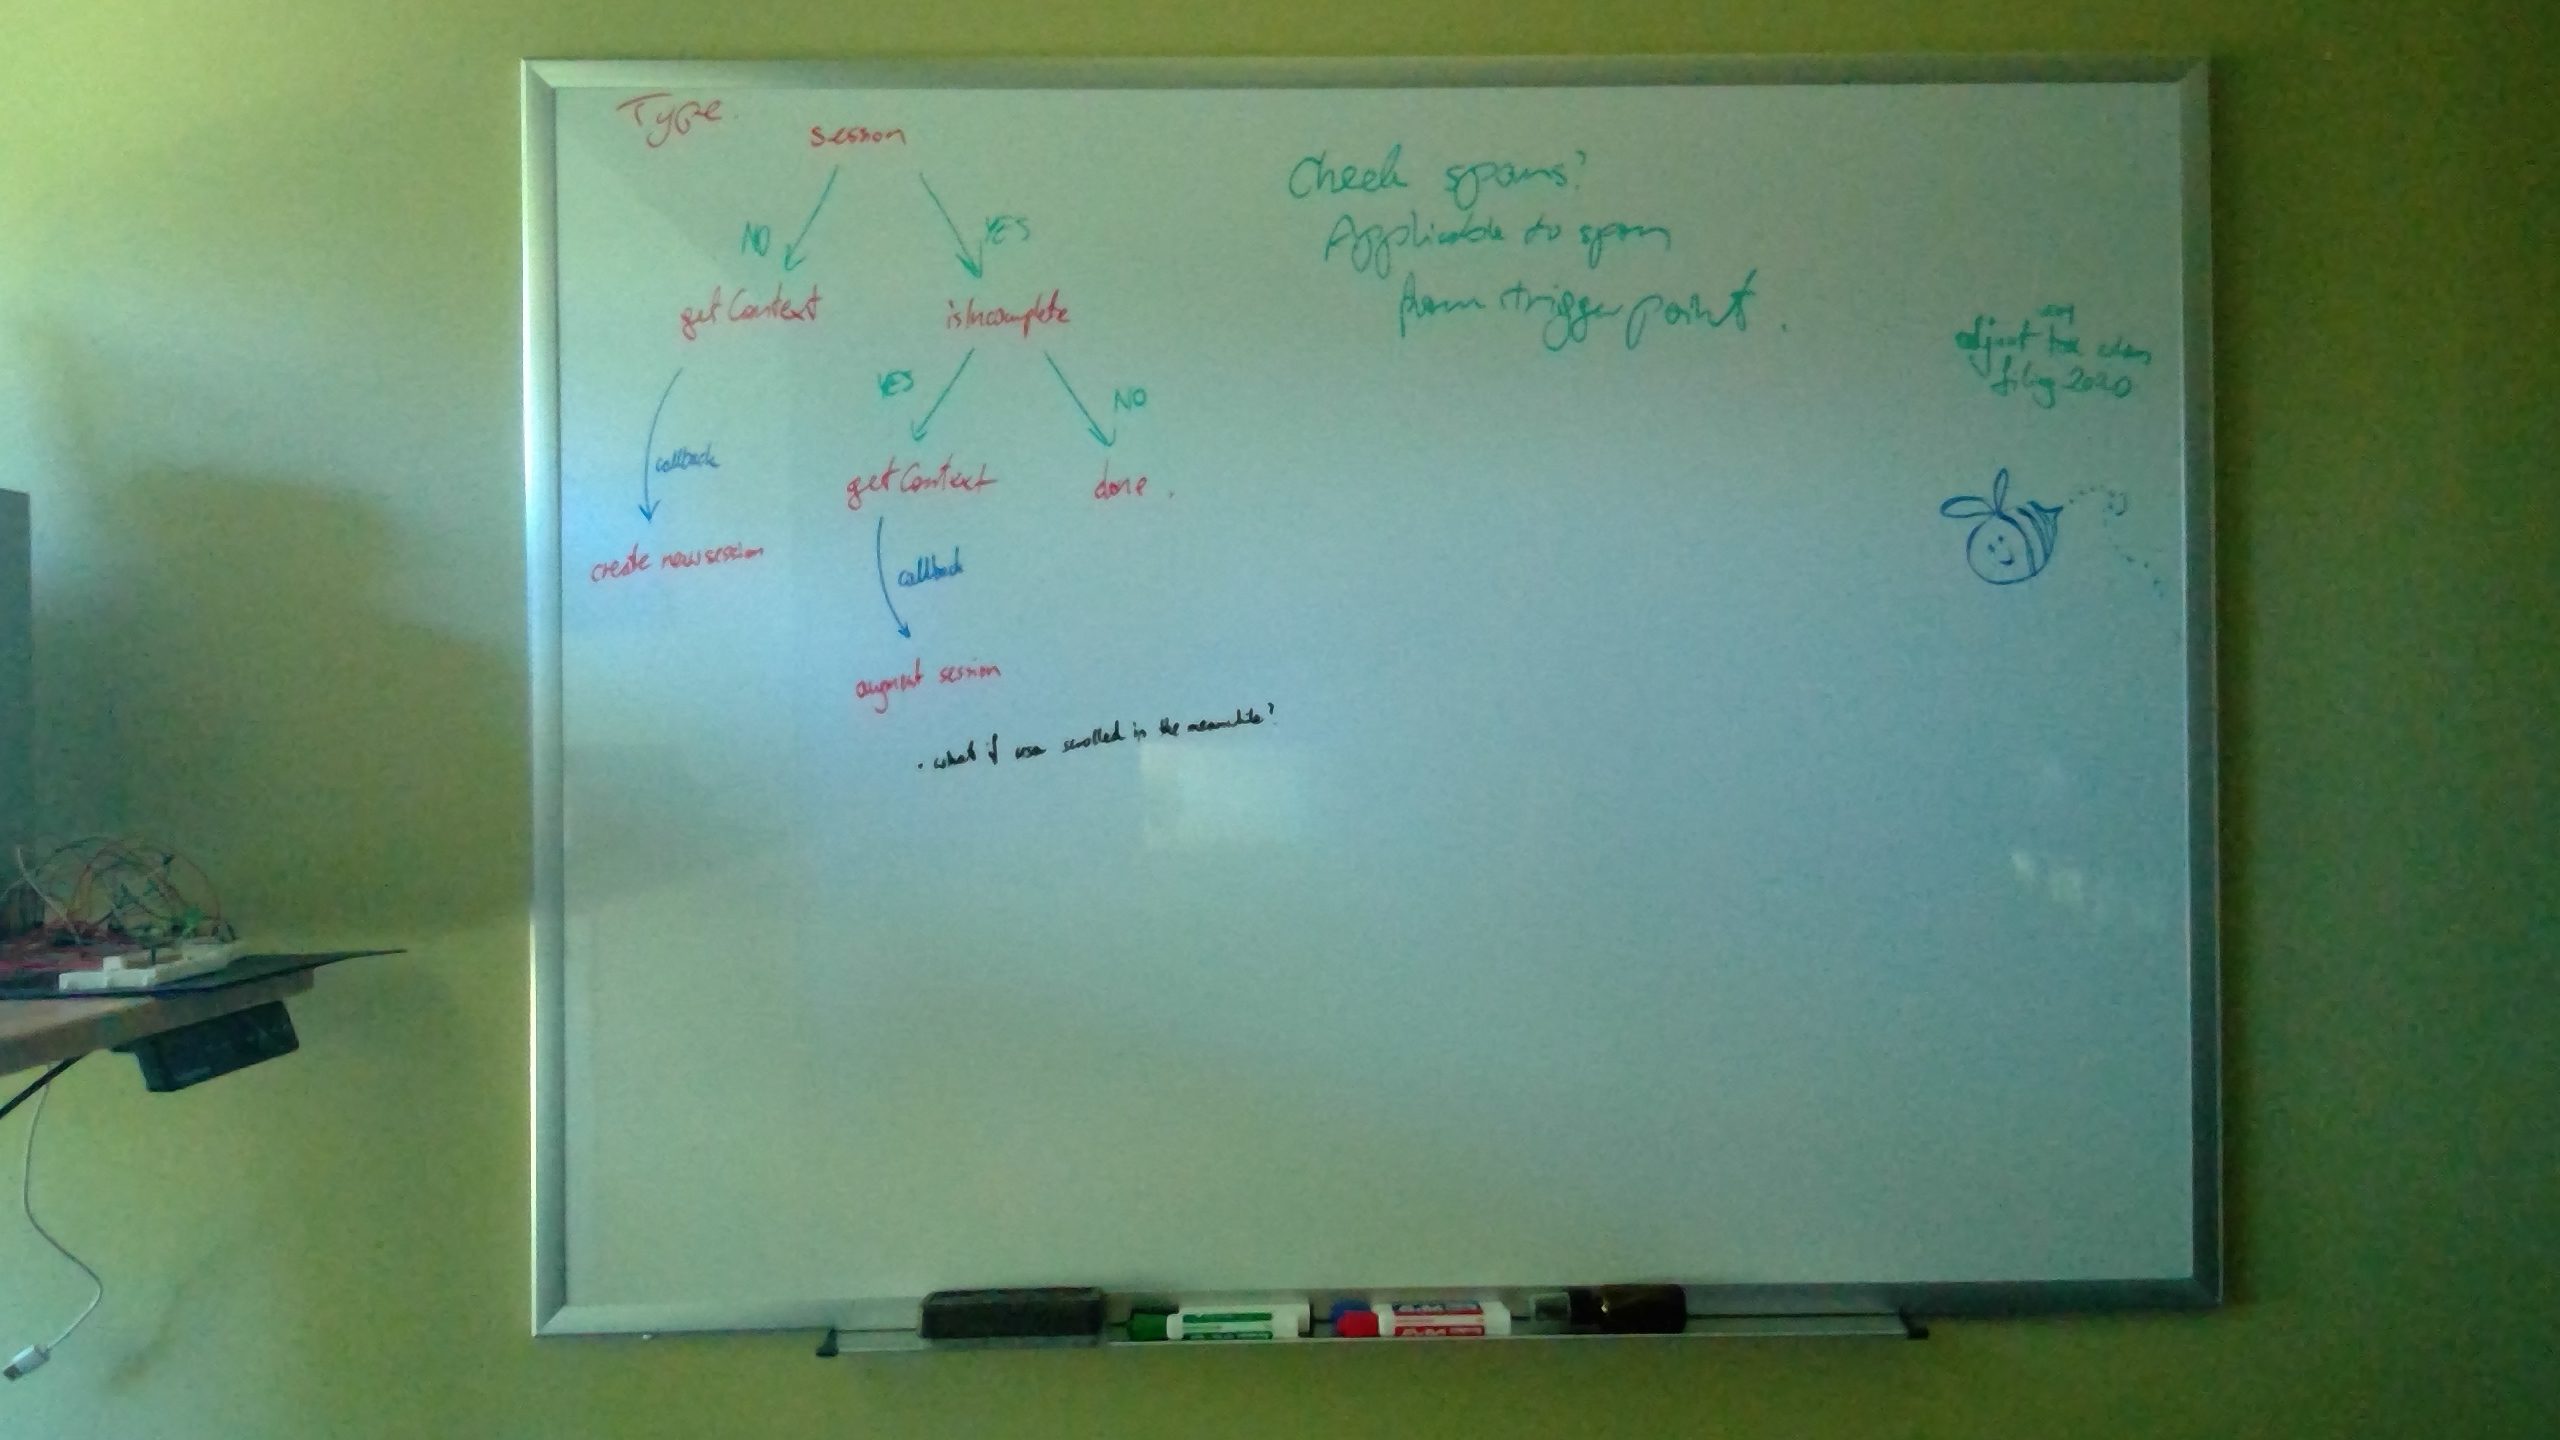 Type.
session
NO
YES
getContext
isIncomplete
YES
NO
callback
getContext
done.
create new session
callback
augment session
. what if user scrolled in the meanwhile?
Check spans?
Applicable to span
from trigger point.
adjust tax
filing 2020